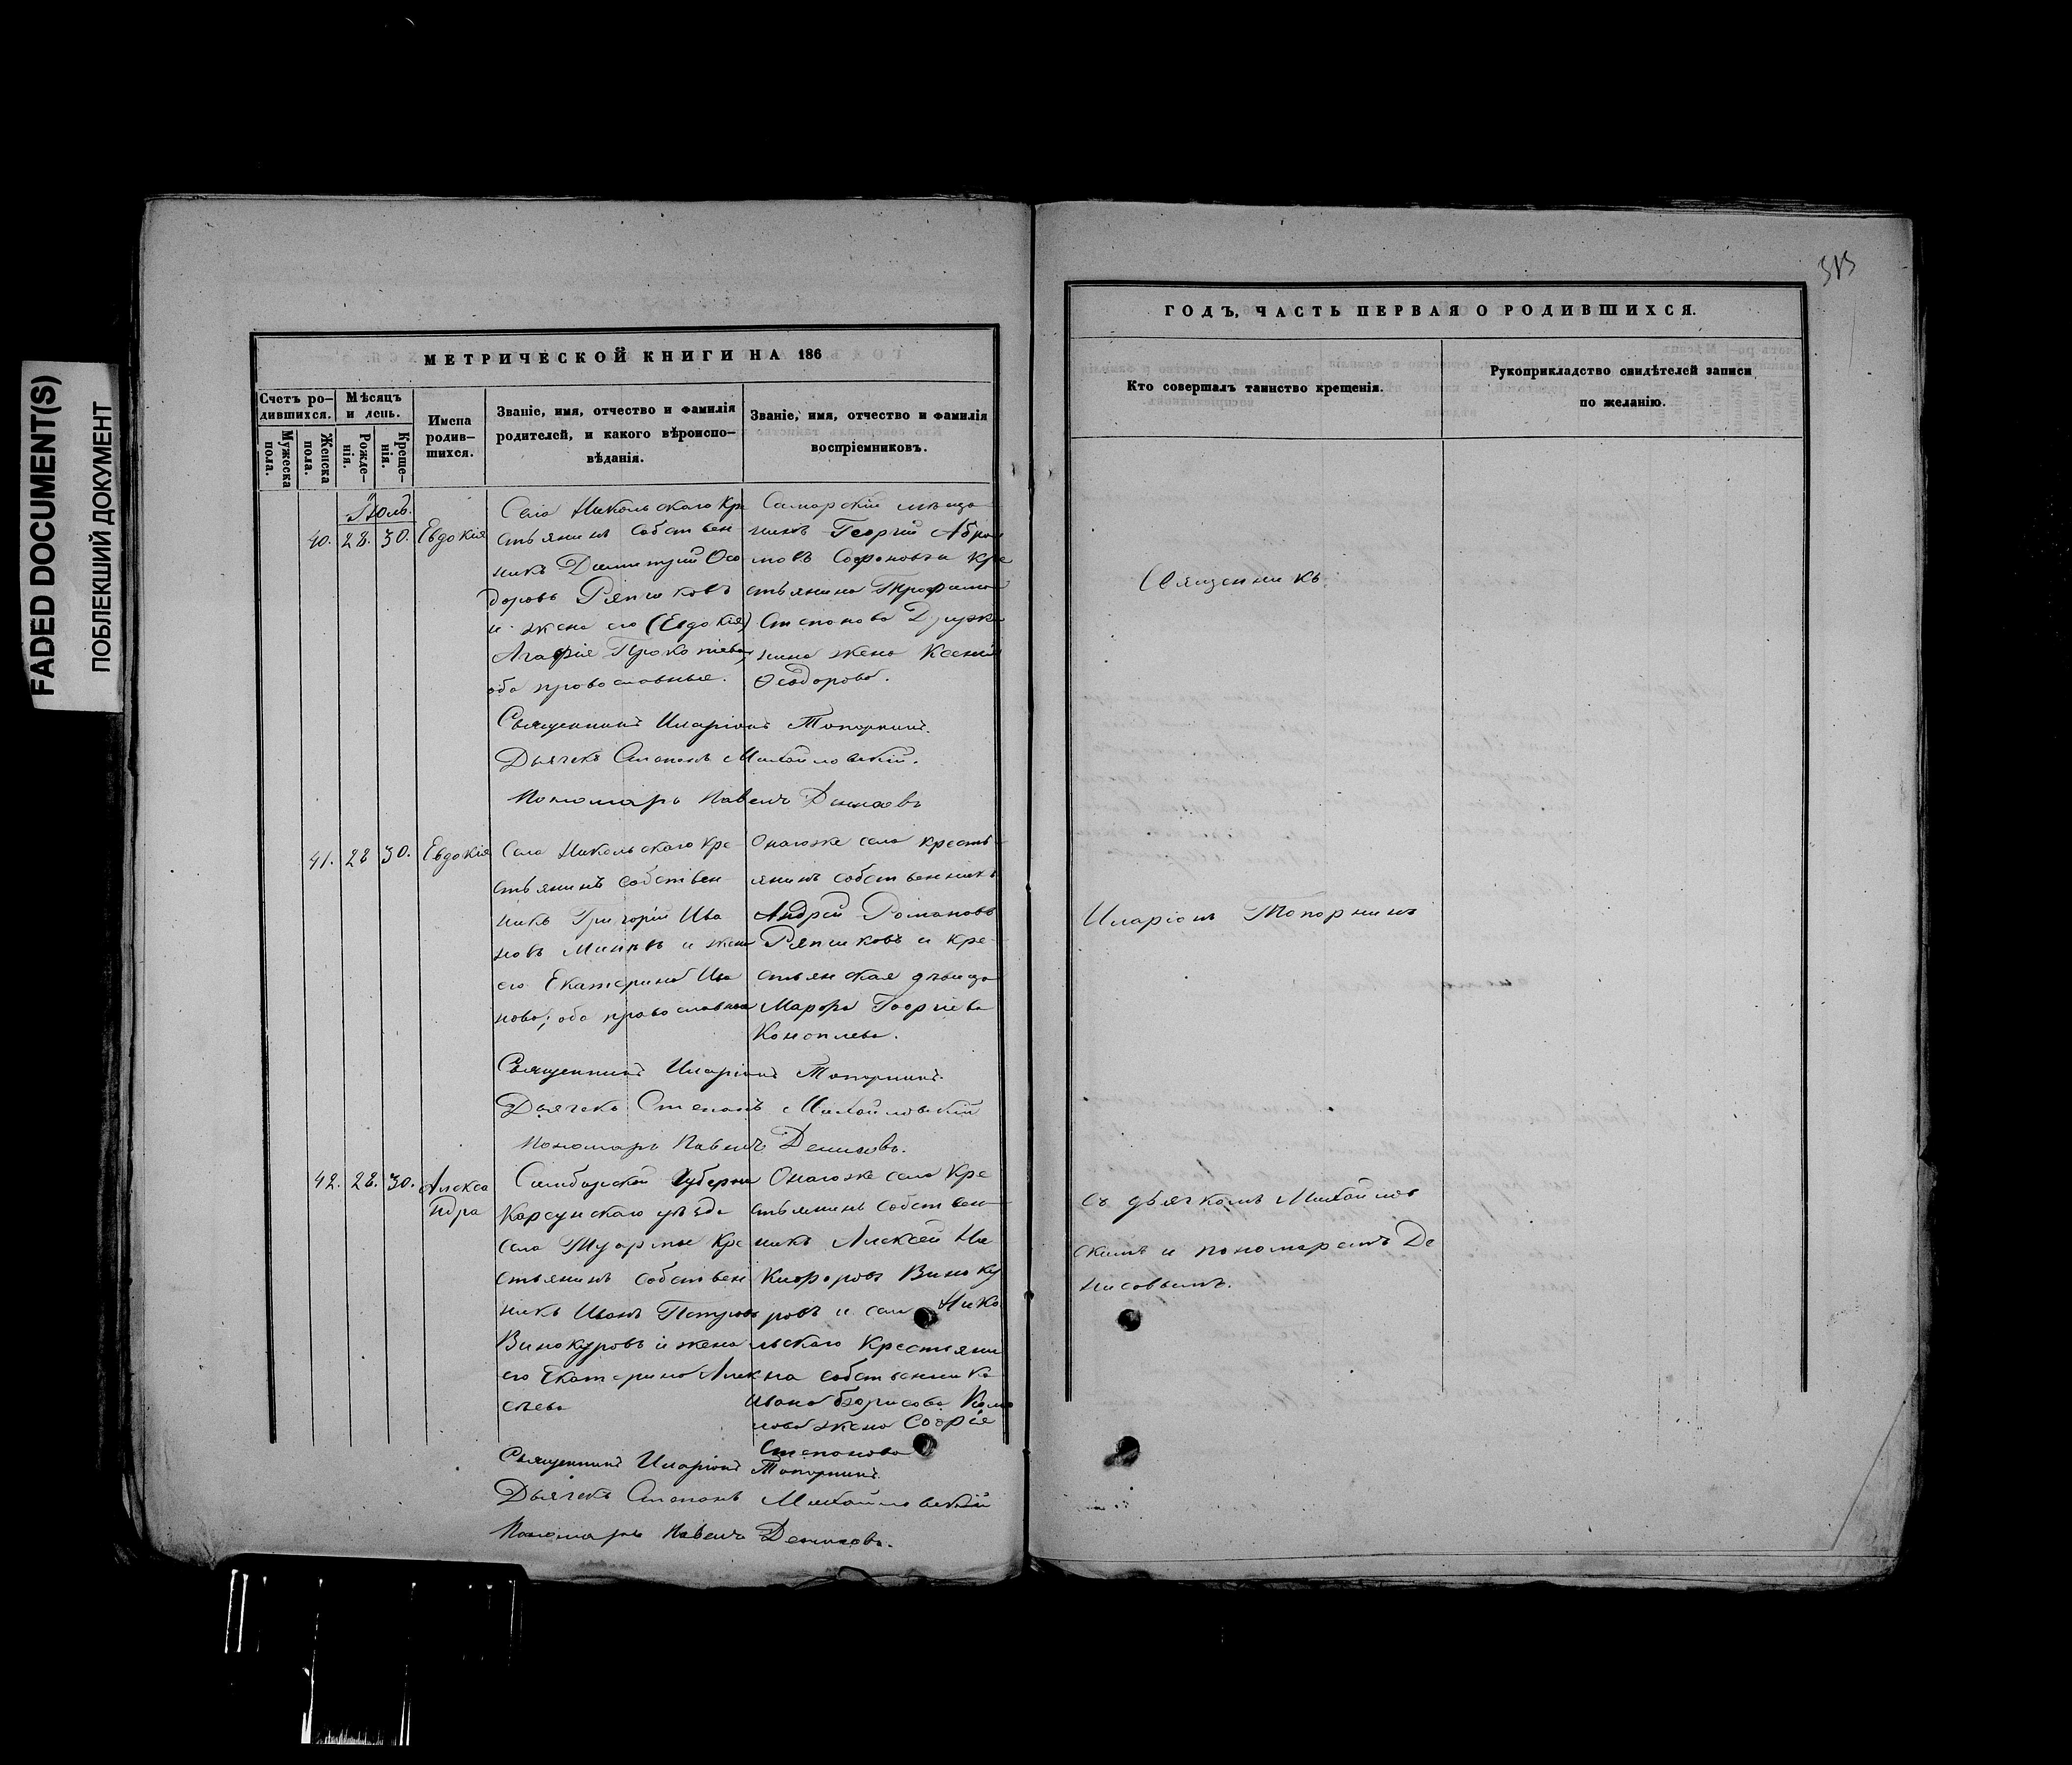 FADED DOCUMENT(S)
ПОБЛЕКШИЙ ДОКУМЕНТ
МЕТРИЧЕСКОЙ КНИГИ НА 186
Счетъ ро-
дившихся.
Мужеска
пола.
Женска
пола.
Мѣсяцъ
и день.
Рожде-
нія.
Креще-
нія.
Имена
родив-
шихся.
Званіе, имя, отчество и фамилія
родителей, и какого вѣроиспо-
вѣданія.
Званіе, имя, отчество и фамилія
воспріемниковъ.
Іюль.
40. 28. 30. Евдокія
Села Никольскаго Кре
стьянинъ собствен-
никъ Димитрій Ѳео
доровъ Ряпиковъ
и жена его (Евдокія)
Агафія Прокопіева,
оба православные.
Самарскій мѣща
нинъ Георгій Абра
мовъ Софоновъ и Кре
стьянина Трофима
Степанова
жена Ксенія
Ѳеодорова.
Священникъ Иларіонъ Топорнинъ.
Дьячекъ Степанъ Михайловскій.
Пономарь Павелъ Денисовъ
41. 28 30. Евдокія
Села Никольскаго Кре-
стьянинъ собствен-
никъ Григорій Ива
новъ и жена
его Екатерина Ива
нова; оба православные
Онагоже села кресть-
янинъ собственникъ
Андрей Романовъ
Ряпиковъ и кре-
стьянская дѣвица
Марфа Георгіева
Коноплева.
Священникъ Иларіонъ Топорнинъ.
Дьячекъ Степанъ Михайловскій
Пономарь Павелъ Денисовъ.
42. 28. 30. Алекса
ндра
Симбирской Губерніи
Карсунскаго уѣзда
села Кре
стьянинъ собствен
никъ Иванъ Петровъ
Винокуровъ и жена
его Екатерина Алек
сѣева
Онагоже села Кре
стьянинъ собствен-
никъ Алексѣй Ни
кифоровъ Виноку
ровъ и села Нико
льскаго Крестьяни
на собственника
Ивана Борисова
жена Софія
Степанова
Священникъ Иларіонъ Топорнинъ.
Дьячекъ Степанъ Михайловскій
Пономарь Павелъ Денисовъ.
313
ГОДЪ, ЧАСТЬ ПЕРВАЯ О РОДИВШИХСЯ.
Кто совершалъ таинство крещенія.
Рукоприкладство свидѣтелей записи
по желанію.
Священникъ
Иларіонъ Топорнинъ
съ дьячкомъ Михайлов
скимъ и пономаремъ Де
нисовымъ.